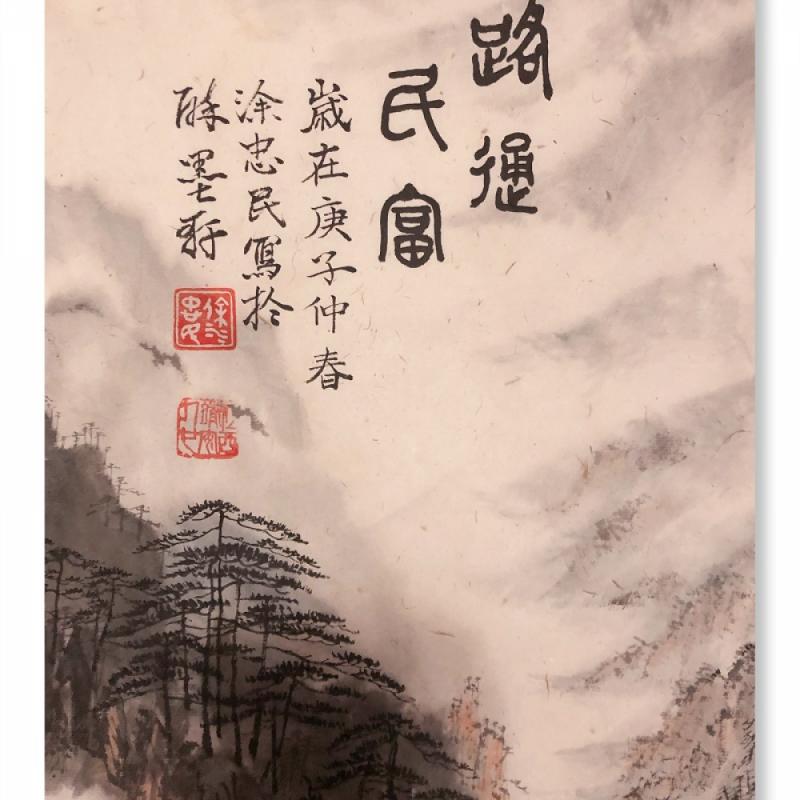 路通
民富
歲在庚子仲春
涂忠民寫於
墨軒